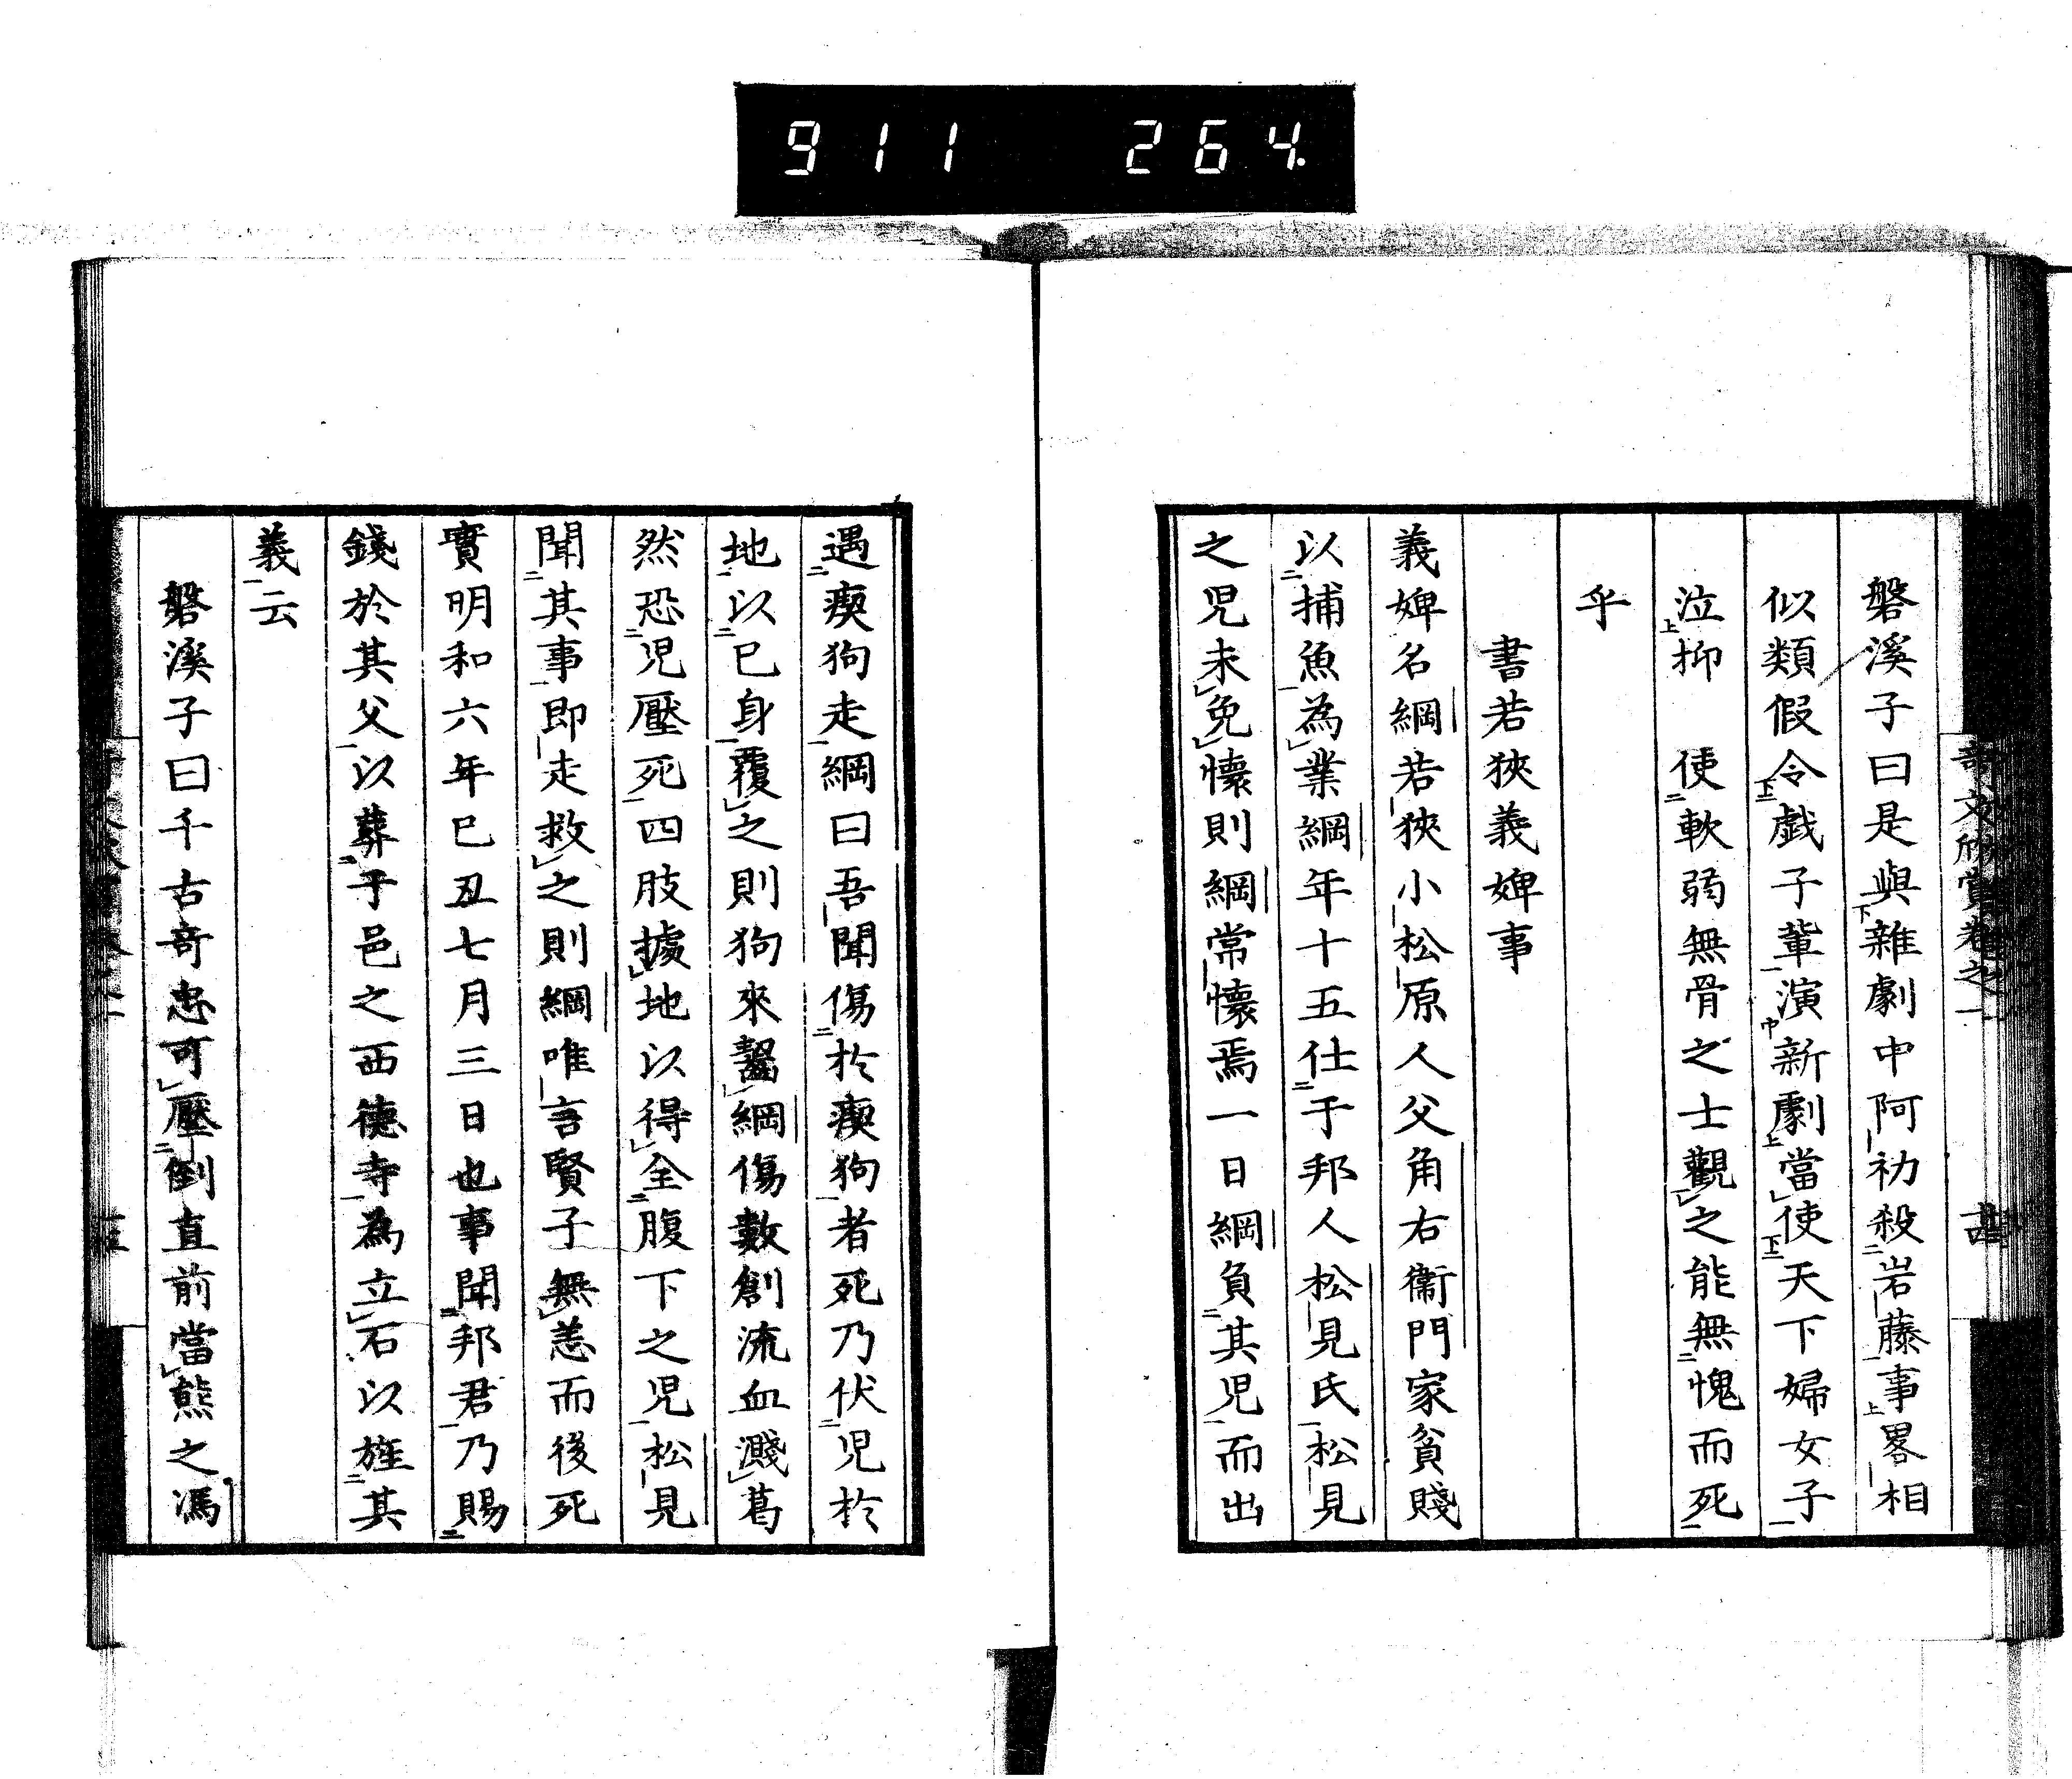 911 264
奇文欣賞卷之一
磐溪子曰是與雜劇中阿初殺岩藤事畧相
似類假令戯子輩演新劇當使天下婦女子
泣抑 使軟弱無骨之士觀之能無愧而死
乎
書若狹義婢事
義婢名綱若狹小松原人父角右衞門家貧賤
以捕魚為業綱年十五仕于邦人松見氏松見
之児未免懐則綱常懐焉一日綱負其児而出
遇瘈狗走綱曰吾聞傷於瘈狗者死乃伏児於
地以已身覆之則狗來齧綱傷數創流血濺葛
然恐児壓死四肢據地以得全腹下之児松見
聞其事即走救之則綱唯言賢子無恙而後死
實明和六年巳丑七月三日也事聞邦君乃賜
錢於其父以葬于邑之西德寺為立石以旌其
義云
磐溪子曰千古奇忠可壓倒直前當熊之馮